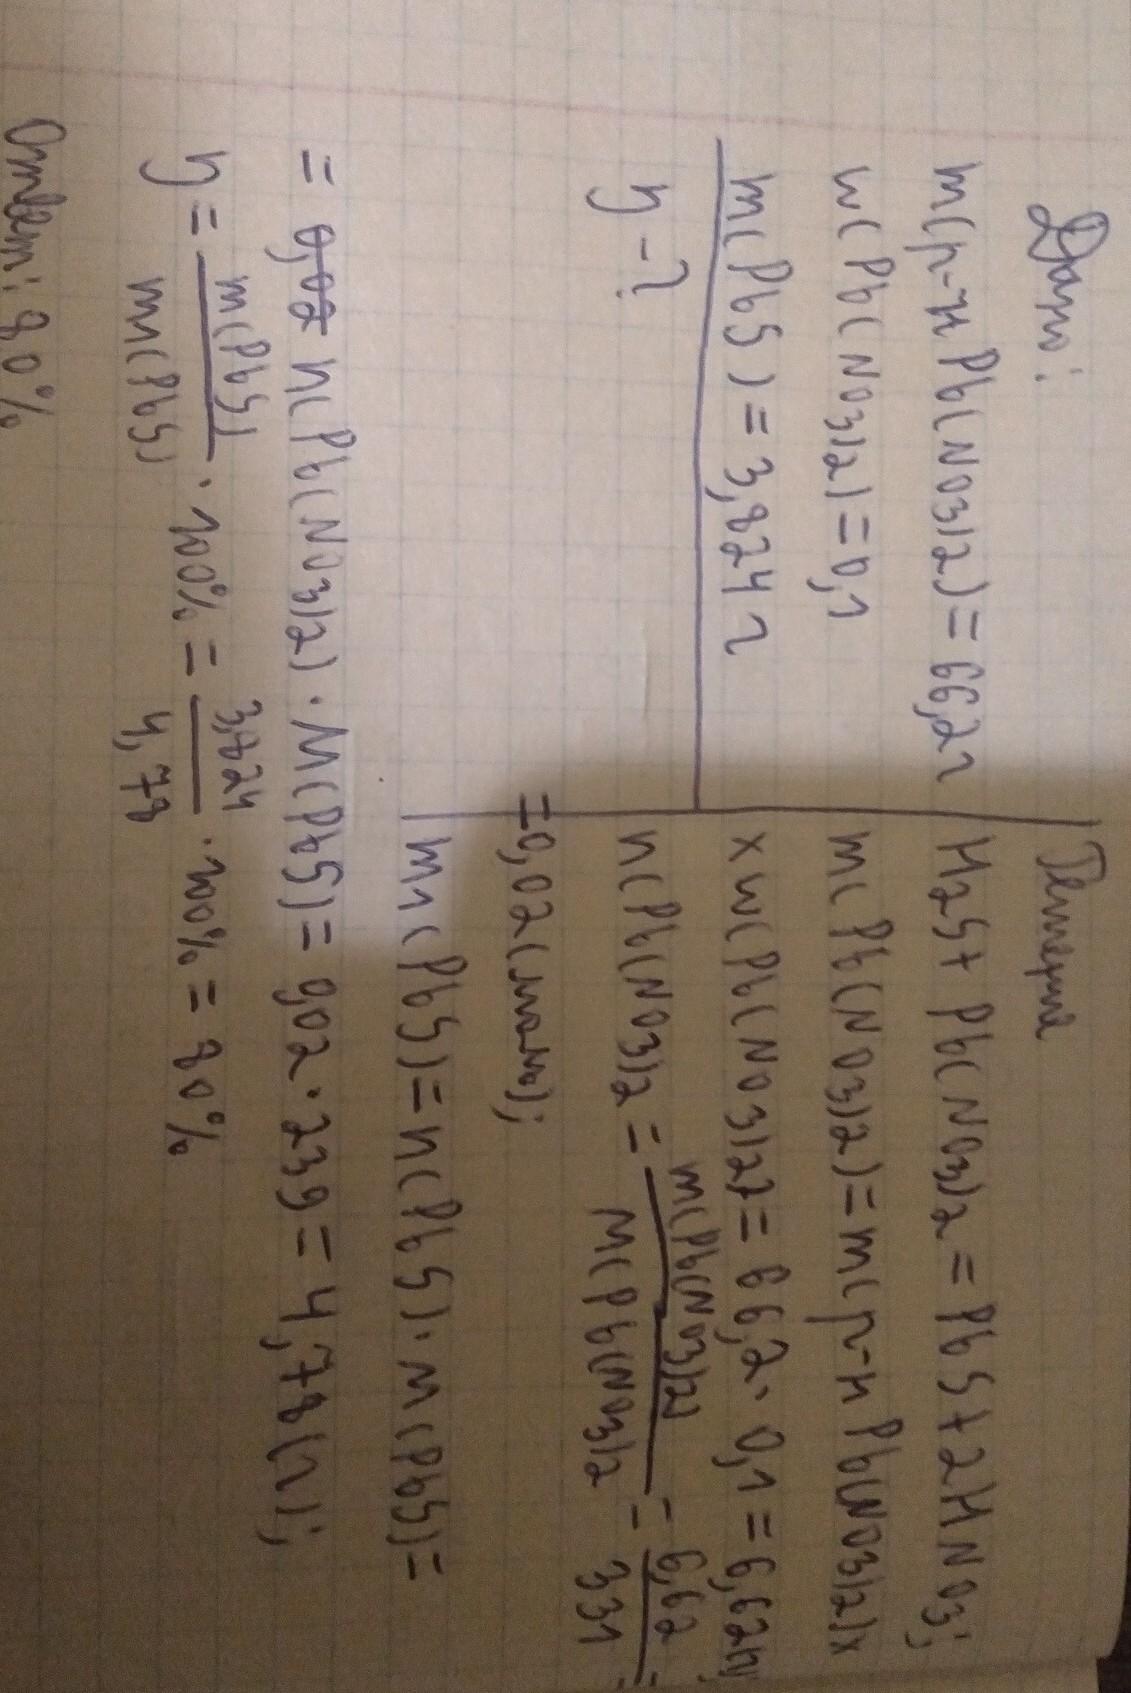 Дано:
m(р-н Pb(NO3)2) = 66,2г
w(Pb(NO3)2) = 0,1
m(PbS) = 3,824 г
η - ?
Решение
H2S + Pb(NO3)2 = PbS + 2HNO3;
m(Pb(NO3)2) = m(р-н Pb(NO3)2) x
x w(Pb(NO3)2) = 66,2 · 0,1 = 6,62(г);
n(Pb(NO3)2 = m(Pb(NO3)2) / M(Pb(NO3)2 = 6,62 / 331 =
= 0,02 (моль);
mт(PbS) = n(PbS) · M(PbS) =
= n(Pb(NO3)2) · M(PbS) = 0,02 · 239 = 4,78(г);
η = m(PbS) / mт(PbS) · 100% = 3,824 / 4,78 · 100% = 80%
Ответ: 80%